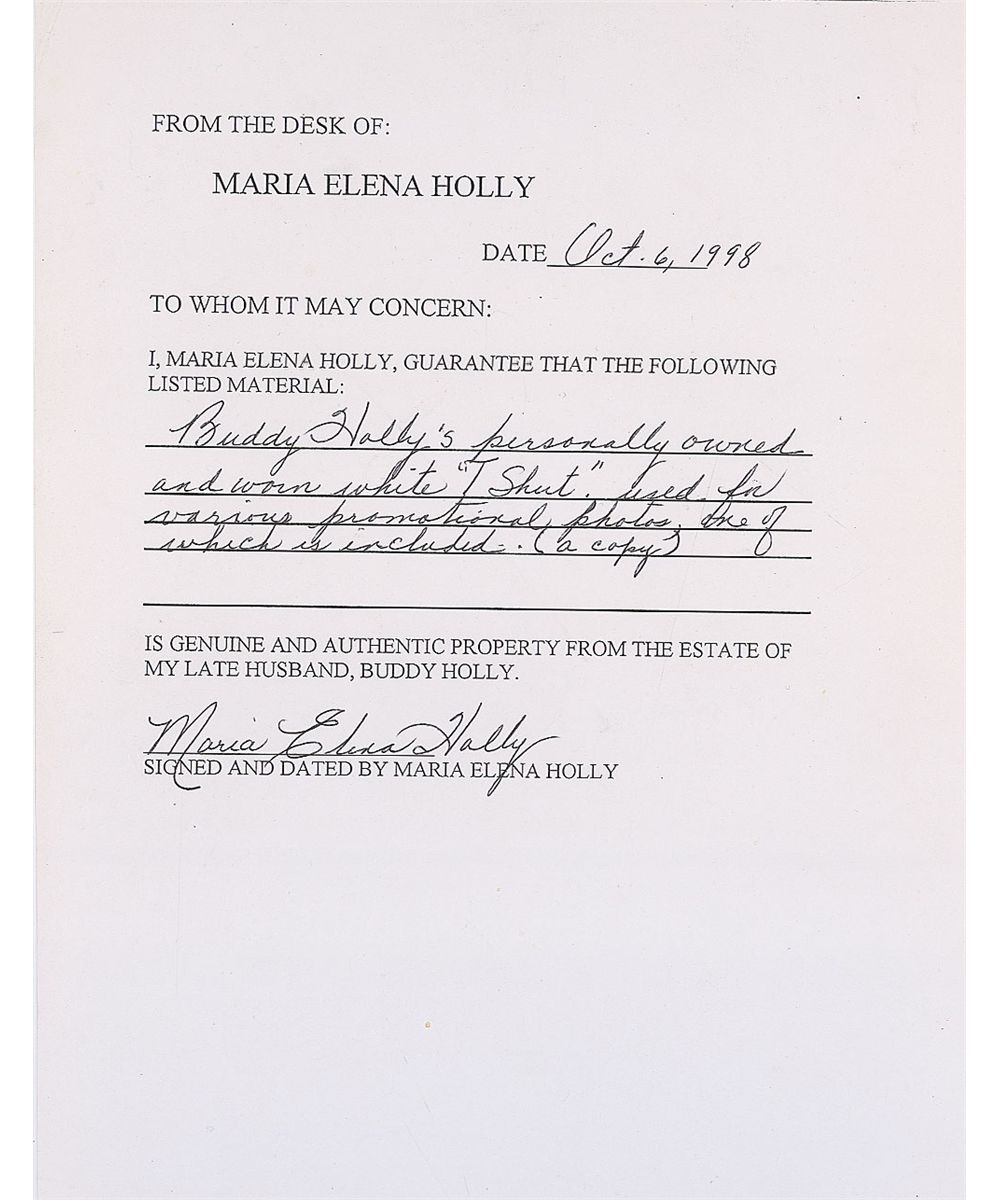 FROM THE DESK OF:
MARIA ELENA HOLLY
DATE Oct. 6, 1998
TO WHOM IT MAY CONCERN:
I, MARIA ELENA HOLLY, GUARANTEE THAT THE FOLLOWING
LISTED MATERIAL:
Buddy Holly's personally owned
and worn white "T Shirt", used for
various promotional photos. One of
which is included. (a copy)
IS GENUINE AND AUTHENTIC PROPERTY FROM THE ESTATE OF
MY LATE HUSBAND, BUDDY HOLLY.
Maria Elena Holly
SIGNED AND DATED BY MARIA ELENA HOLLY